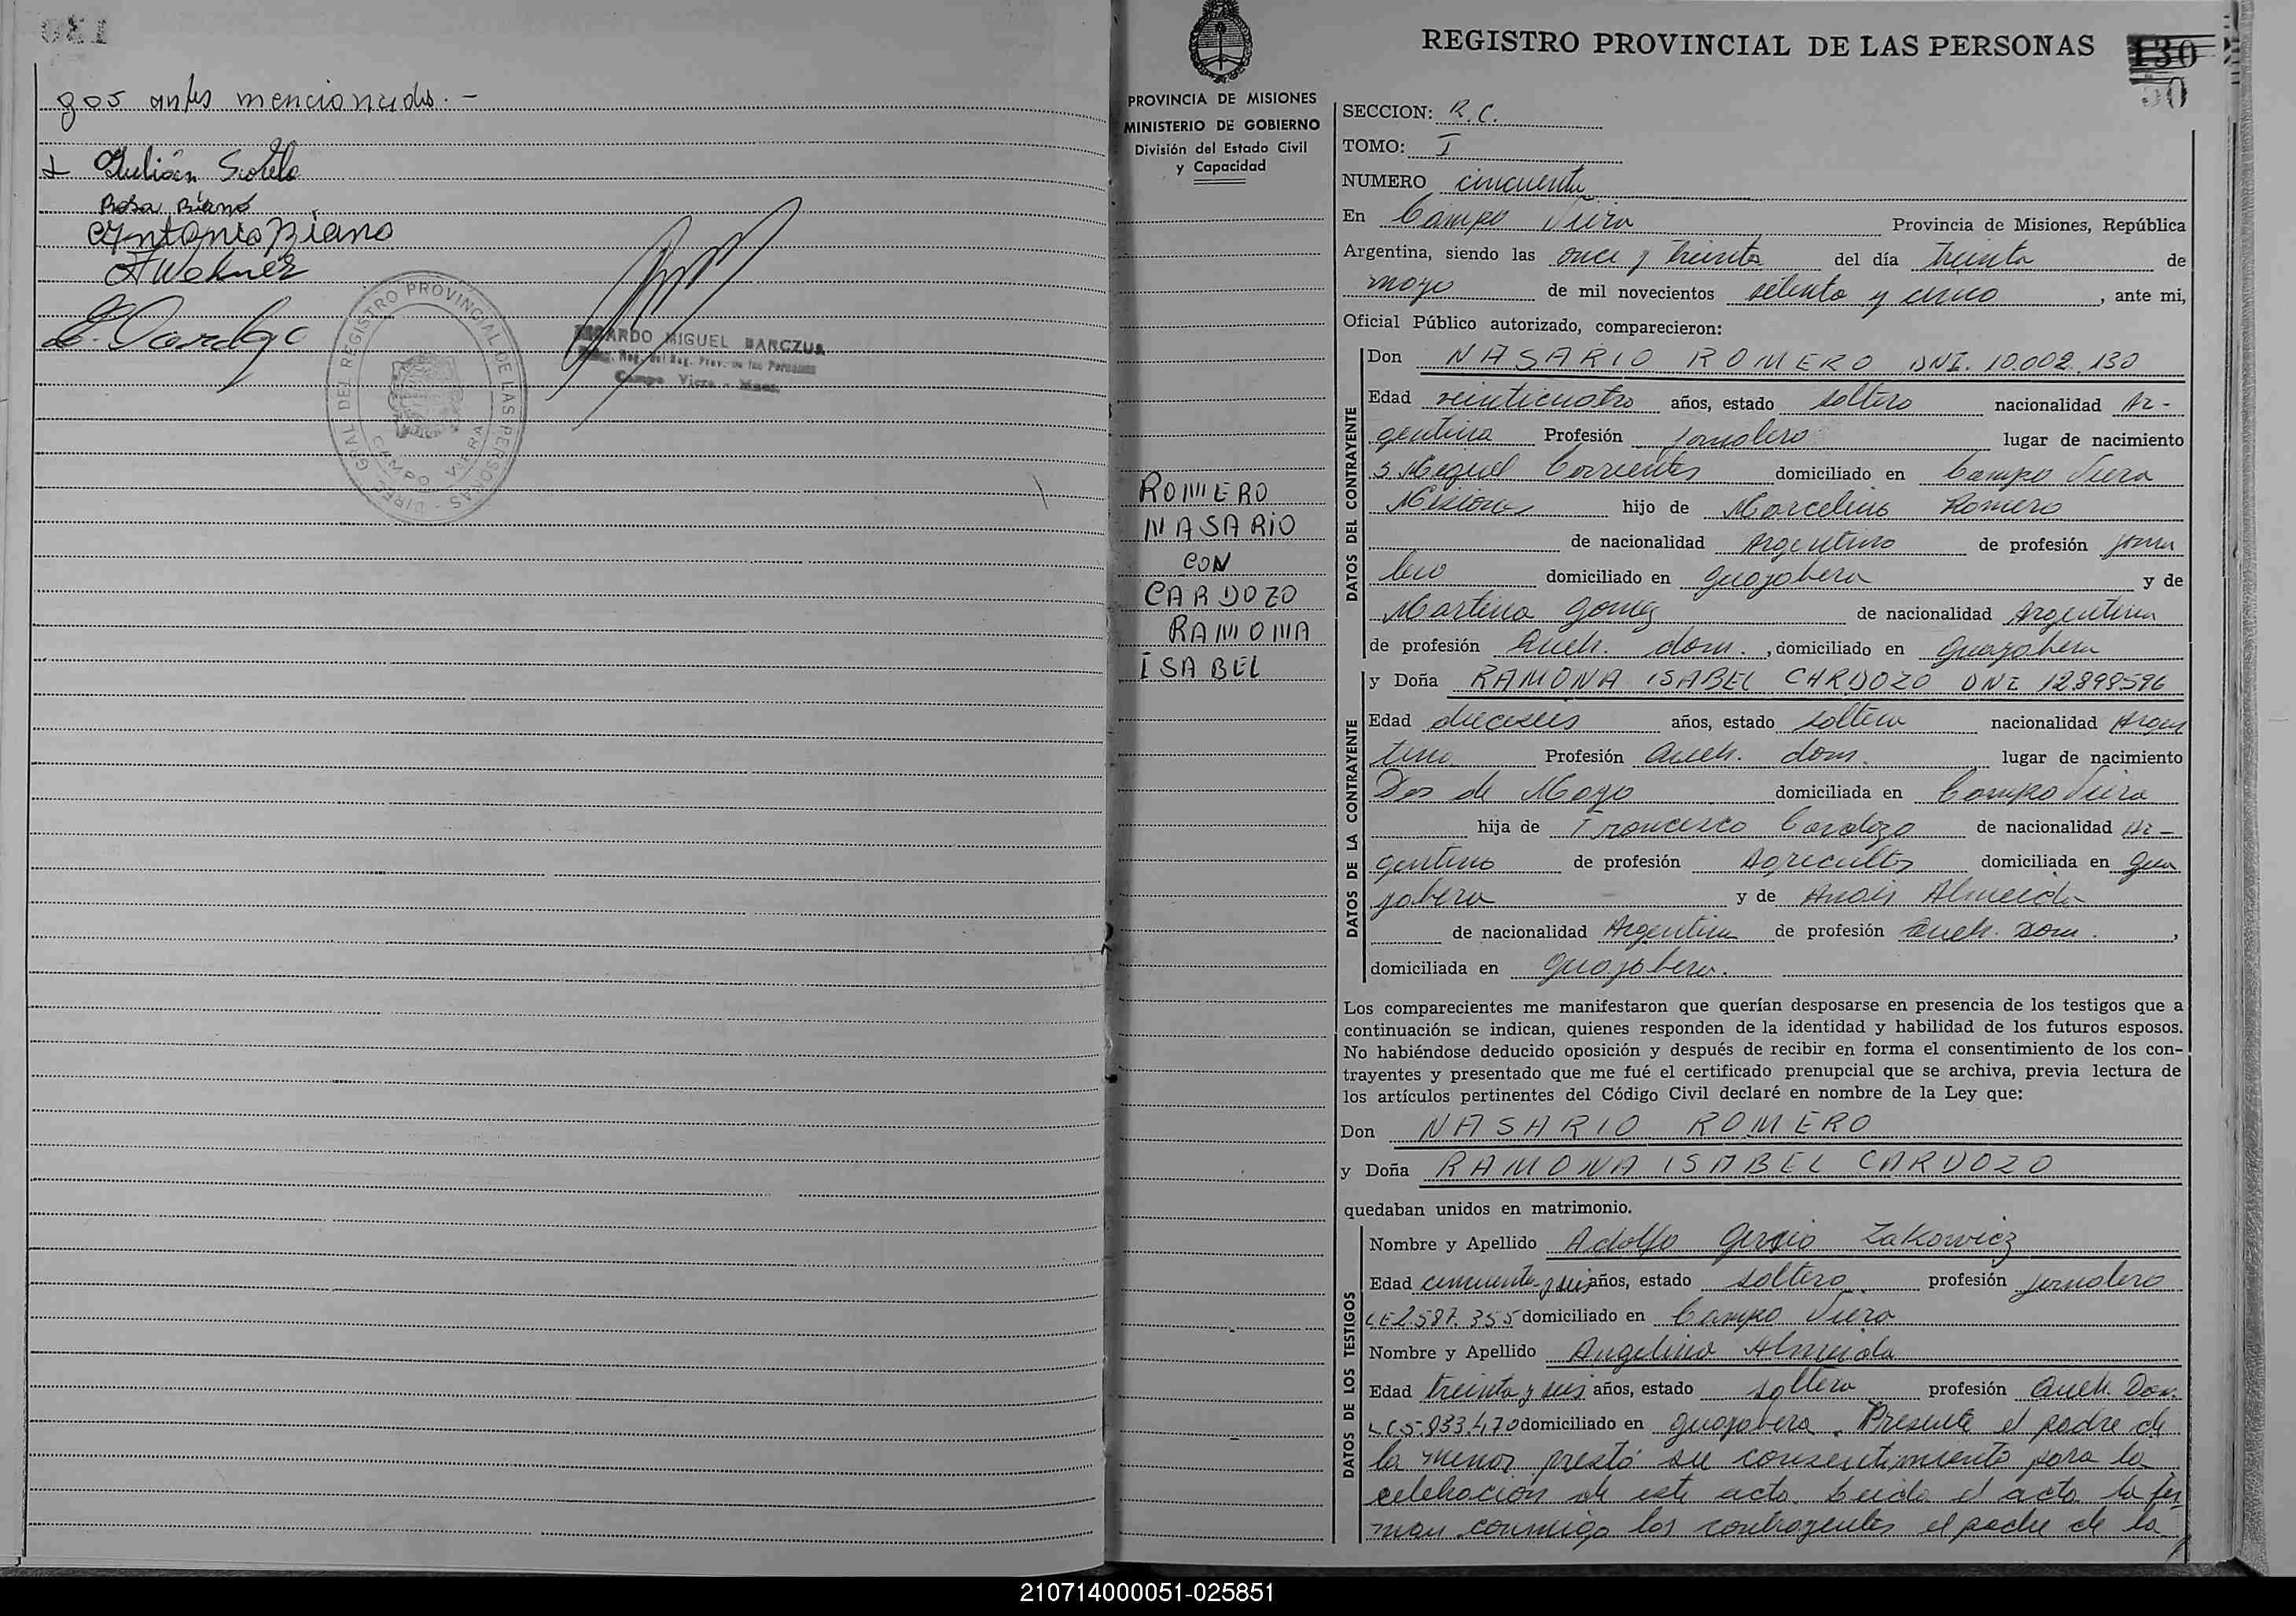 130
gos antes mencionados. -
Julián Sotelo
Rosa Biano
Antonio Biano
A Wehner
REGISTRO PROVINCIAL DE LAS PERSONAS
DIREC GRAL DEL
CAMPO VIERA
MIGUEL BARCZUK
Campo Viera - Mnes.
PROVINCIA DE MISIONES
MINISTERIO DE GOBIERNO
División del Estado Civil
y Capacidad
ROMERO
NASARIO
CON
CARDOZO
RAMONA
ISABEL
REGISTRO PROVINCIAL DE LAS PERSONAS
130
50
SECCION: R.C.
TOMO: I
NUMERO cincuenta
En Campo Viera Provincia de Misiones, República
Argentina, siendo las once y treinta del día treinta de
mayo de mil novecientos setenta y cinco, ante mi,
Oficial Público autorizado, comparecieron:
DATOS DEL CONTRAYENTE
Don NASARIO ROMERO DNI. 10.002.130
Edad veinticuatro años, estado soltero nacionalidad Ar-
gentina Profesión Jornalero lugar de nacimiento
S. Miguel Corrientes domiciliado en Campo Viera
Misiones hijo de Marcelino Romero
de nacionalidad Argentino de profesión jorna
lero domiciliado en Guayabera y de
Martina Gomez de nacionalidad Argentina
de profesión Queh. dom., domiciliado en Guayabera
DATOS DE LA CONTRAYENTE
y Doña RAMONA ISABEL CARDOZO DNI 12.898596
Edad dieciseis años, estado soltera nacionalidad Argen
tina Profesión Queh. dom. lugar de nacimiento
Dos de Mayo domiciliada en Campo Viera
hija de Francisco Cardozo de nacionalidad Ar-
gentino de profesión Agricultor domiciliada en Gua
yabera y de Anais Almeida
de nacionalidad Argentina de profesión Queh. Dom.,
domiciliada en Guayabera.
Los comparecientes me manifestaron que querían desposarse en presencia de los testigos que a
continuación se indican, quienes responden de la identidad y habilidad de los futuros esposos.
No habiéndose deducido oposición y después de recibir en forma el consentimiento de los con-
trayentes y presentado que me fué el certificado prenupcial que se archiva, previa lectura de
los artículos pertinentes del Código Civil declaré en nombre de la Ley que:
Don NASARIO ROMERO
y Doña RAMONA ISABEL CARDOZO
quedaban unidos en matrimonio.
DATOS DE LOS TESTIGOS
Nombre y Apellido Adolfo Zakowicz
Edad cincuenta y seis años, estado soltero profesión jornalero
LE 2587.355 domiciliado en Campo Viera
Nombre y Apellido Angelina Almeida
Edad treinta y seis años, estado soltera profesión Queh. Dom.
LC 5.933.470 domiciliado en Guayabera. Presente el padre de
la menor prestó su consentimiento para la
celebración de este acto. Leida el acta la fir
man conmigo los contrayentes el padre de la
210714000051-025851